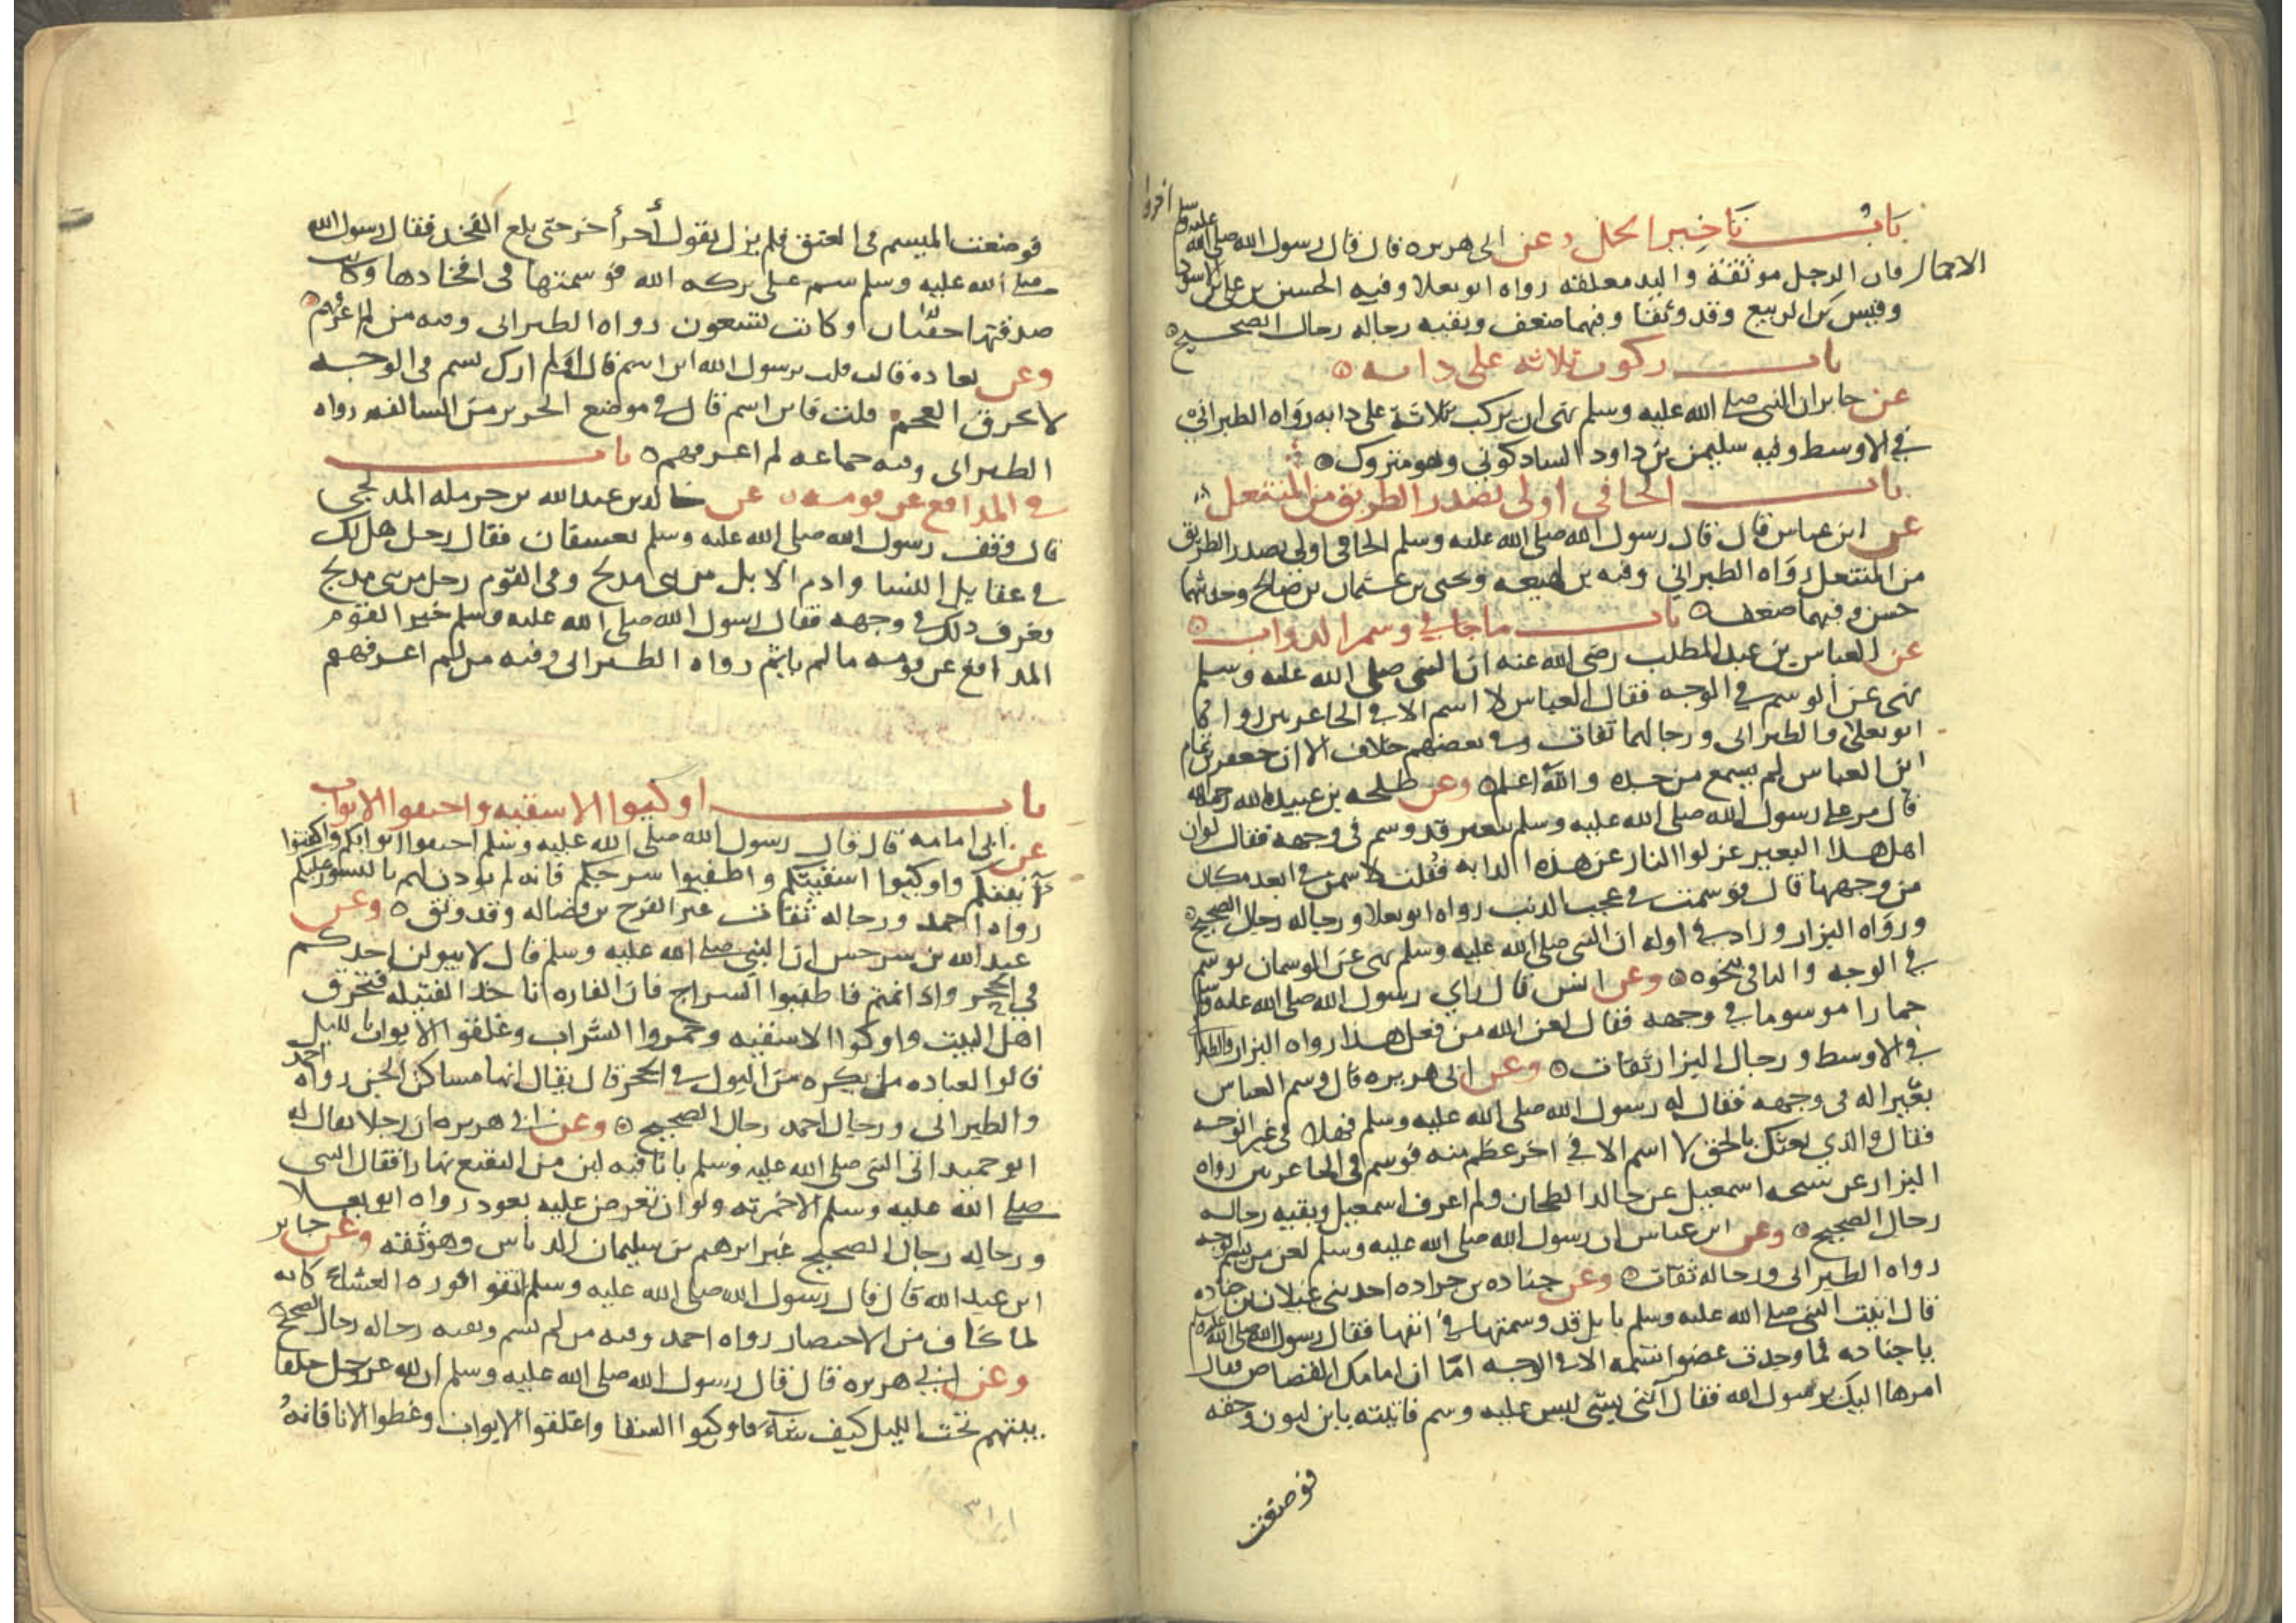 باب تاخير الحمل وعن ابي هريره قال قال رسول الله صلى الله عليه وسلم اخروا
الاحمال فان الرجل موثقة واليد معلقه رواه ابو يعلا وفيه الحسين بن علي بن الاسود
وقيس بن الربيع وقد وثقا وفيهما ضعف وبقيه رجاله رجال الصحيح
باب ركوب ثلاثه على دابه
عن جابر ان النبي صلى الله عليه وسلم نهى ان يركب ثلاثة على دابه رواه الطبراني
في الاوسط وفيه سليمن بن داود الشادكوني وهو متروك
باب الحافي اولى بصدر الطريق من المنتعل
عن ابن عباس قال قال رسول الله صلى الله عليه وسلم الحافي اولى بصدر الطريق
من المنتعل رواه الطبراني وفيه بن لهيعه ويحيى بن عثمان بن صالح وحديثهما
حسن وفيهما ضعف باب ما جا في وسم الدواب
عن العباس بن عبد المطلب رضي الله عنه ان النبي صلى الله عليه وسلم
نهى عن الوسم في الوجه فقال العباس لا اسم الا في الجاعرتين رواكما
ابو يعلى والطبراني ورجالهما ثقات وفي بعضهم خلاف الا ان جعفر بن تمام
ابن العباس لم يسمع من جده والله اعلم وعن طلحه بن عبيد الله رحمه الله
قال مر على رسول الله صلى الله عليه وسلم ببعير قد وسم في وجهه فقال لو ان
اهل هذا البعير عزلوا النار عن هذه الدابه فقلت لاسمن في ابعد مكان
من وجهها قال فوسمت في عجب الذنب رواه ابو يعلا ورجاله رجال الصحيح
ورواه البزار وزاد في اوله ان النبي صلى الله عليه وسلم نهى عن الوسم ان يوسم
في الوجه والباقي بنحوه وعن انس قال راي رسول الله صلى الله عليه وسلم
حمارا موسوما في وجهه فقال لعن الله من فعل هذا رواه البزار والطبراني
في الاوسط ورجال البزار ثقات وعن ابي هريره قال وسم العباس
بعيرا له في وجهه فقال له رسول الله صلى الله عليه وسلم فهلا في غير الوجه
فقال والذي بعثك بالحق لا اسم الا في اخر عظم منه فوسم في الجاعرتين رواه
البزار عن شيخه اسمعيل عن خالد الطحان ولم اعرف اسمعيل وبقيه رجاله
رجال الصحيح وعن ابن عباس ان رسول الله صلى الله عليه وسلم لعن من يسم الوجه
رواه الطبراني ورجاله ثقات وعن جناده بن جراده احد بني غيلان بن جناده
قال اتيت النبي صلى الله عليه وسلم بابل قد وسمتها في انفها فقال رسول الله صلى الله عليه وسلم
يا جناده فما وجدت عضوا تسمه الا في الوجه اما ان امامك القصاص فقال
امرها اليك يرسول الله فقال ائتني بشي ليس عليه وسم فاتيته بابن لبون وحقه
فوضعت
فوضعت الميسم في العنق فلم يزل يقول أخر أخر حتى بلغ الفخد فقال رسول الله
صلى الله عليه وسلم سم على بركه الله فوسمتها في افخادها وكانت
صدقتها حقتان وكانت تسعون رواه الطبراني وفيه من لم اعرفهم
وعن نقاده قالت قلت يرسول الله اين اسم قال ارك تسم في الوجه
لا تحرق العجم قلت فاين اسم قال في موضع الجرير من السالفه رواه
الطبراني وفيه جماعه لم اعرفهم باب
في المدافع عن قومه عن خالد بن عبد الله بن حرمله المدلجي
قال وقف رسول الله صلى الله عليه وسلم بعسفان فقال رجل هل لك
في عقايل النسا وادم الابل من بني مدلج وفي القوم رجل من بني مدلج
فعرف ذلك في وجهه فقال رسول الله صلى الله عليه وسلم خير القوم
المدافع عن قومه ما لم ياثم رواه الطبراني وفيه من لم اعرفهم
باب اوكيوا الاسقيه واجيفوا الابواب
عن ابي امامه قال قال رسول الله صلى الله عليه وسلم اجيفوا ابوابكم واكفئوا
آنيتكم واوكيوا اسقيتكم واطفيوا سرجكم فانه لم يودن لهم بالتسور عليكم
رواه احمد ورجاله ثقات غير الفرج بن فضاله وقد وثق وعن
عبد الله بن سرجس ان النبي صلى الله عليه وسلم قال لا يبولن احدكم
في الجحر واذا نمتم فاطفيوا السراج فان الفاره تاخذ الفتيله فتحرق
اهل البيت واوكوا الاسقيه وخمروا الشراب وغلقوا الابواب بالليل
قالوا لقتاده ما يكره من البول في الجحر قال يقال انها مساكن الجن رواه احمد
والطبراني ورجال احمد رجال الصحيح وعن ابي هريره ان رجلا يقال له
ابو حميد اتى النبي صلى الله عليه وسلم باناء فيه لبن من النقيع نهارا فقال النبي
صلى الله عليه وسلم الا خمرته ولو ان تعرض عليه بعود رواه ابو يعلا
ورجاله رجال الصحيح غير ابرهيم بن سليمان الدباس وهو ثقه وعن جابر
ابن عبد الله قال قال رسول الله صلى الله عليه وسلم اتقوا فوره العشاء كانه
لما يخاف من الاحتضار رواه احمد وفيه من لم يسم وبقيه رجاله رجال الصحيح
وعن ابي هريره قال قال رسول الله صلى الله عليه وسلم ان لله عز وجل خلقا
يبثهم تحت الليل كيف شاء فاوكيوا السقا واغلقوا الابواب وغطوا الانا فانه